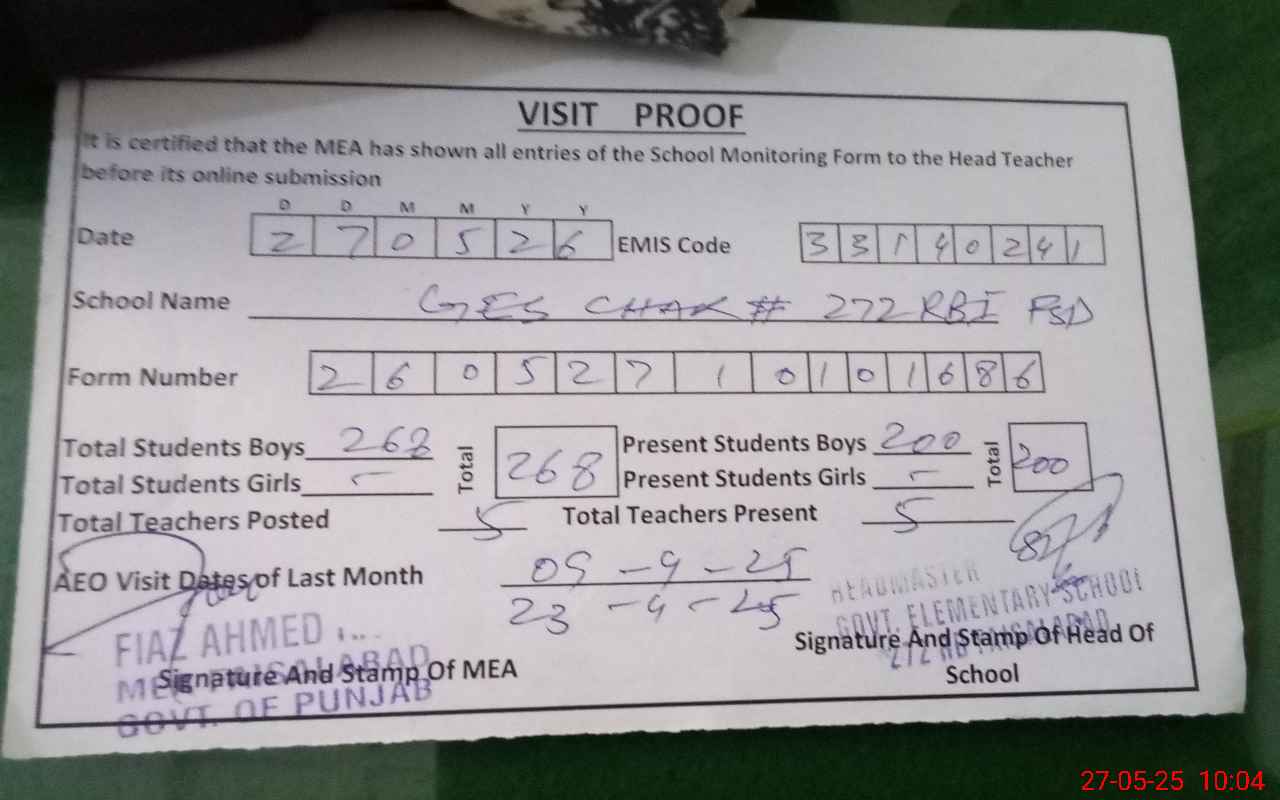 VISIT PROOF
It is certified that the MEA has shown all entries of the School Monitoring Form to the Head Teacher
before its online submission
D D M M Y Y
Date 2 7 0 5 2 6 EMIS Code 3 3 1 4 0 2 4 1
School Name GES CHAK # 272 RBI FSD
Form Number 2 6 0 5 2 7 1 0 1 0 1 6 8 6
Total Students Boys 268 Total 268 Present Students Boys 200 Total 200
Total Students Girls - Present Students Girls -
Total Teachers Posted 5 Total Teachers Present 5
AEO Visit Dates of Last Month 09-4-25
23-4-25
HEADMASTER
GOVT. ELEMENTARY SCHOOL
FIAZ AHMED
Signature And Stamp Of MEA
GOVT. OF PUNJAB
Signature And Stamp Of Head Of
School
27-05-25 10:04